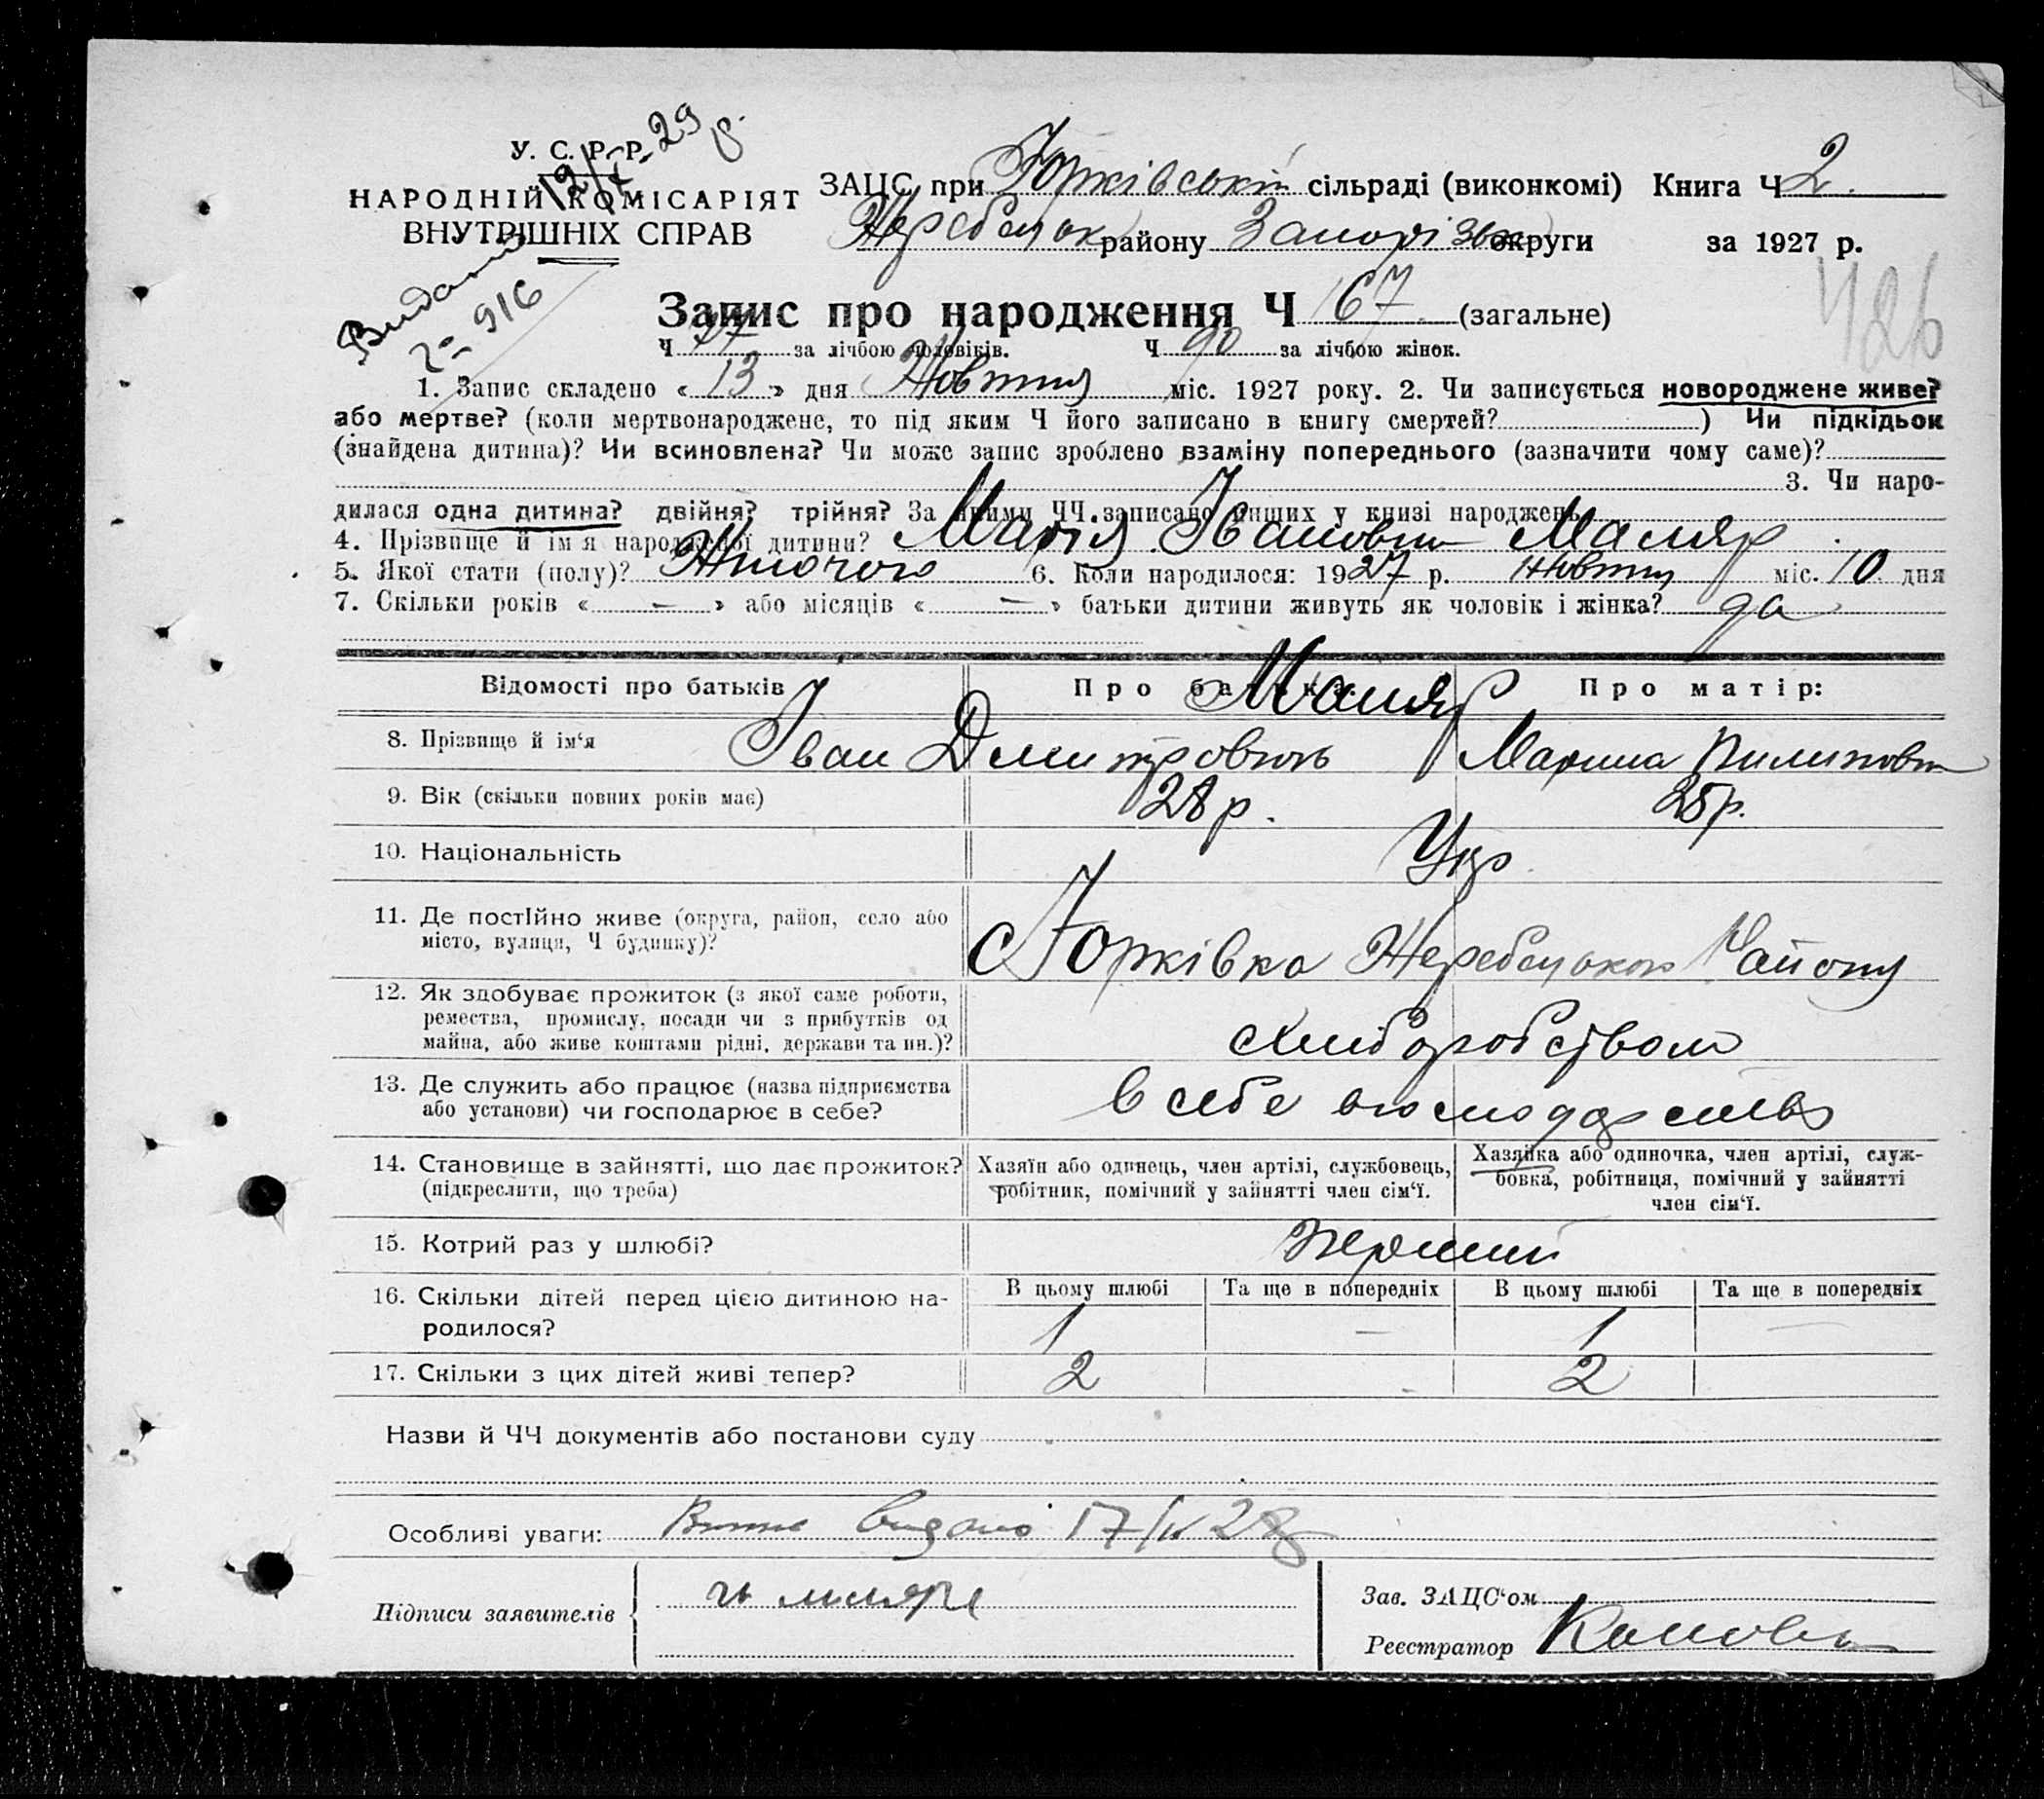 У. С. Р. Р.
12/X-29 р.
НАРОДНІЙ КОМІСАРІЯТ
ВНУТРІШНІХ СПРАВ
Видано
916
ЗАЦС при Юрківській сільраді (виконкомі) Книга Ч 2.
Жеребецьк району Запорізьк округи за 1927 р.
426
Запис про народження Ч 167 (загальне)
Ч 77 за лічбою чоловіків. Ч 90 за лічбою жінок.
1. Запис складено « 13 » дня Жовтня міс. 1927 року. 2. Чи записується новороджене живе?
або мертве? (коли мертвонароджене, то під яким Ч його записано в книгу смертей? ) Чи підкідьок
(знайдена дитина)? Чи всиновлена? Чи може запис зроблено взаміну попереднього (зазначити чому саме)?
3. Чи наро-
дилася одна дитина? двійня? трійня? За якими ЧЧ записано инших у книзі народжень
4. Прізвище й ім'я народженої дитини? Марія Івановна Маляр
5. Якої стати (полу)? Жіночого 6. Коли народилося: 1927 р. Жовтня міс. 10 дня
7. Скільки років « — » або місяців « — » батьки дитини живуть як чоловік і жінка? да
Відомості про батьків Про батька: Про матір:
Маляр
8. Прізвище й ім'я Іван Дмитрович Марина Пилиповна
9. Вік (скільки повних років має) 28 р. 25 р.
10. Національність Укр
11. Де постійно живе (округа, район, село або
місто, вулиця, Ч будинку)?
с Юрківка Жеребецького Району
12. Як здобуває прожиток (з якої саме роботи,
ремества, промислу, посади чи з прибутків од
майна, або живе коштами рідні, держави та ин.)?
хліборобством
13. Де служить або працює (назва підприємства
або установи) чи господарює в себе?
в себе в господарстві
14. Становище в зайнятті, що дає прожиток?
(підкреслити, що треба)
Хазяїн або одинець, член артілі, службовець,
робітник, помічний у зайнятті член сім'ї.
Хазяйка або одиночка, член артілі, служ-
бовка, робітниця, помічний у зайнятті
член сім'ї.
15. Котрий раз у шлюбі? перший
16. Скільки дітей перед цією дитиною на-
родилося?
В цьому шлюбі Та ще в попередніх В цьому шлюбі Та ще в попередніх
1 — 1 —
17. Скільки з цих дітей живі тепер? 2 2
Назви й ЧЧ документів або постанови суду
Особливі уваги: видано 17/IV 28
Підписи заявителів
Зав. ЗАЦС'ом
Реєстратор